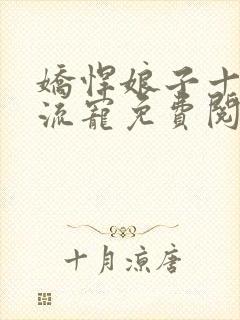 嬌悍娘子十
流寵免費閱
十月涼唐